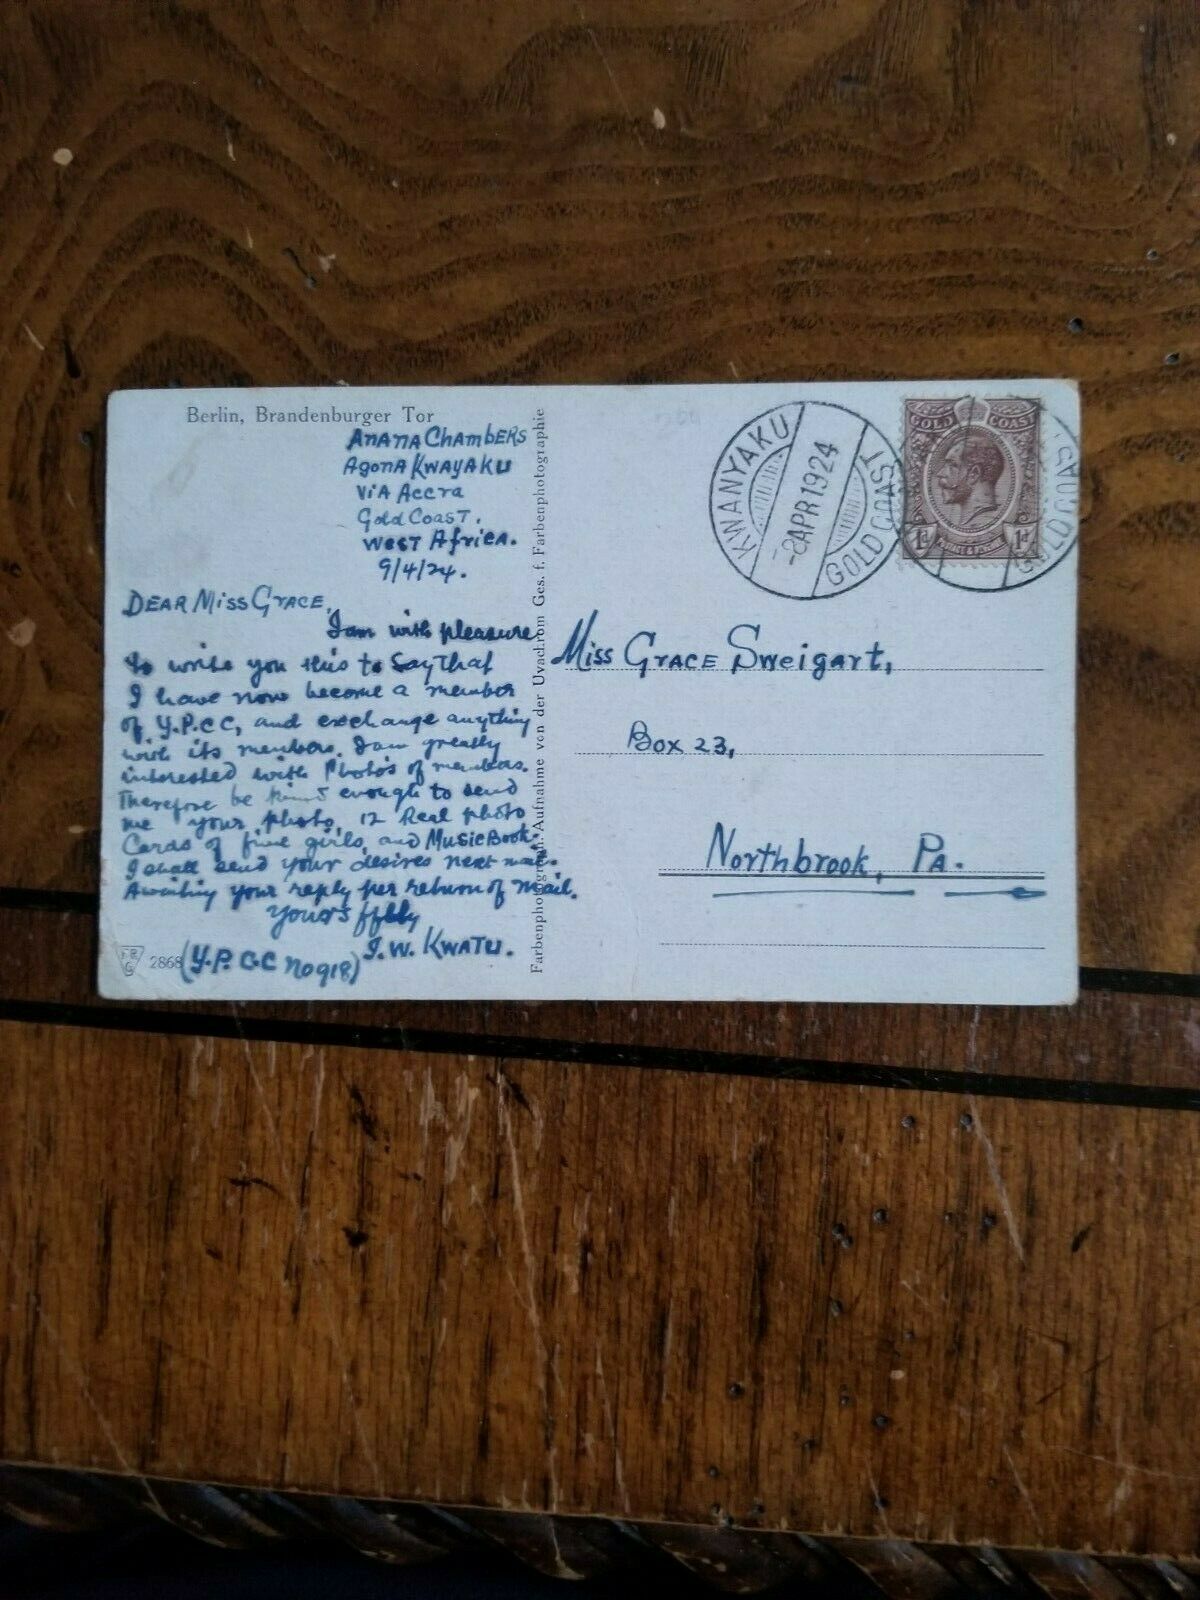 Berlin, Brandenburger Tor
Anana Chambers
Agona Kwayaku
Via Accra
Gold Coast.
West Africa.
9/4/24.
Dear Miss Grace,
I am with pleasure
to write you this to Say that
I have now become a member
of Y.P.C.C, and exchange anything
with its members. I am greatly
interested with Photo's of members.
Therefore be kind enough to send
me your photo, 12 Real photo
Cards of fine girls, and Music Book.
I shall send your desires next mail.
Awaiting your reply per return of mail.
Yours ffully
J.W. Kwatu.
(Y.P.C.C No 918)
2868
Farbenphotograph. Aufnahme von der Uvachrom Ges. f. Farbenphotographie
KWANYAKU
-8 APR 1924
GOLD COAST
GOLD COAST
1d 1d
GOLD COAST
Miss Grace Sweigart,
Box 23,
Northbrook, Pa.